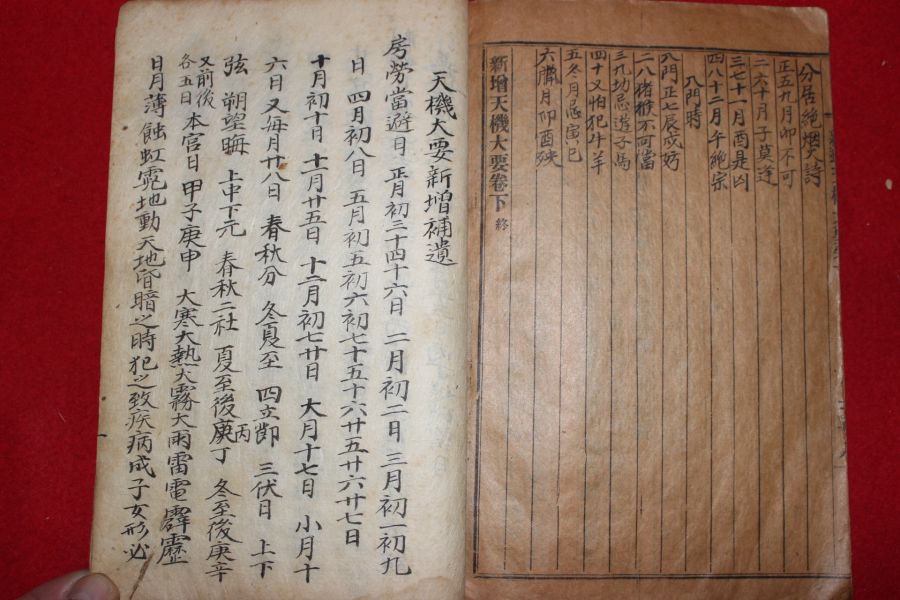 分居絶烟火詩
正五九月卯不可
二六十月子莫逢
三七十一月酉是凶
四八十二月午絶宗
入門時
入門正七辰戌好
二八猪猴不可當
三九切忌逰子馬
四十又怕犯牛羊
五冬月忌寅巳
六臘月卯酉殃
新增天機大要卷下 終
天機大要新增補遺
房勞當避日 正月初三十四十六日 二月初二日 三月初一初九
日 四月初八日 五月初五初六初七十五十六廿五廿六廿七日
十月初十日 十一月廿五日 十二月初七廿日 大月十七日 小月十
六日 又每月廿八日 春秋分 冬夏至 四立節 三伏日 上下
弦 朔望晦 上中下元 春秋二社 夏至後丙丁 冬至後庚辛
又前後各五日 本宮日 甲子庚申 大寒大熱大霧大雨雷電霹靂
日月薄蝕虹霓地動天地昏暗之時犯之致疾病成子女形必